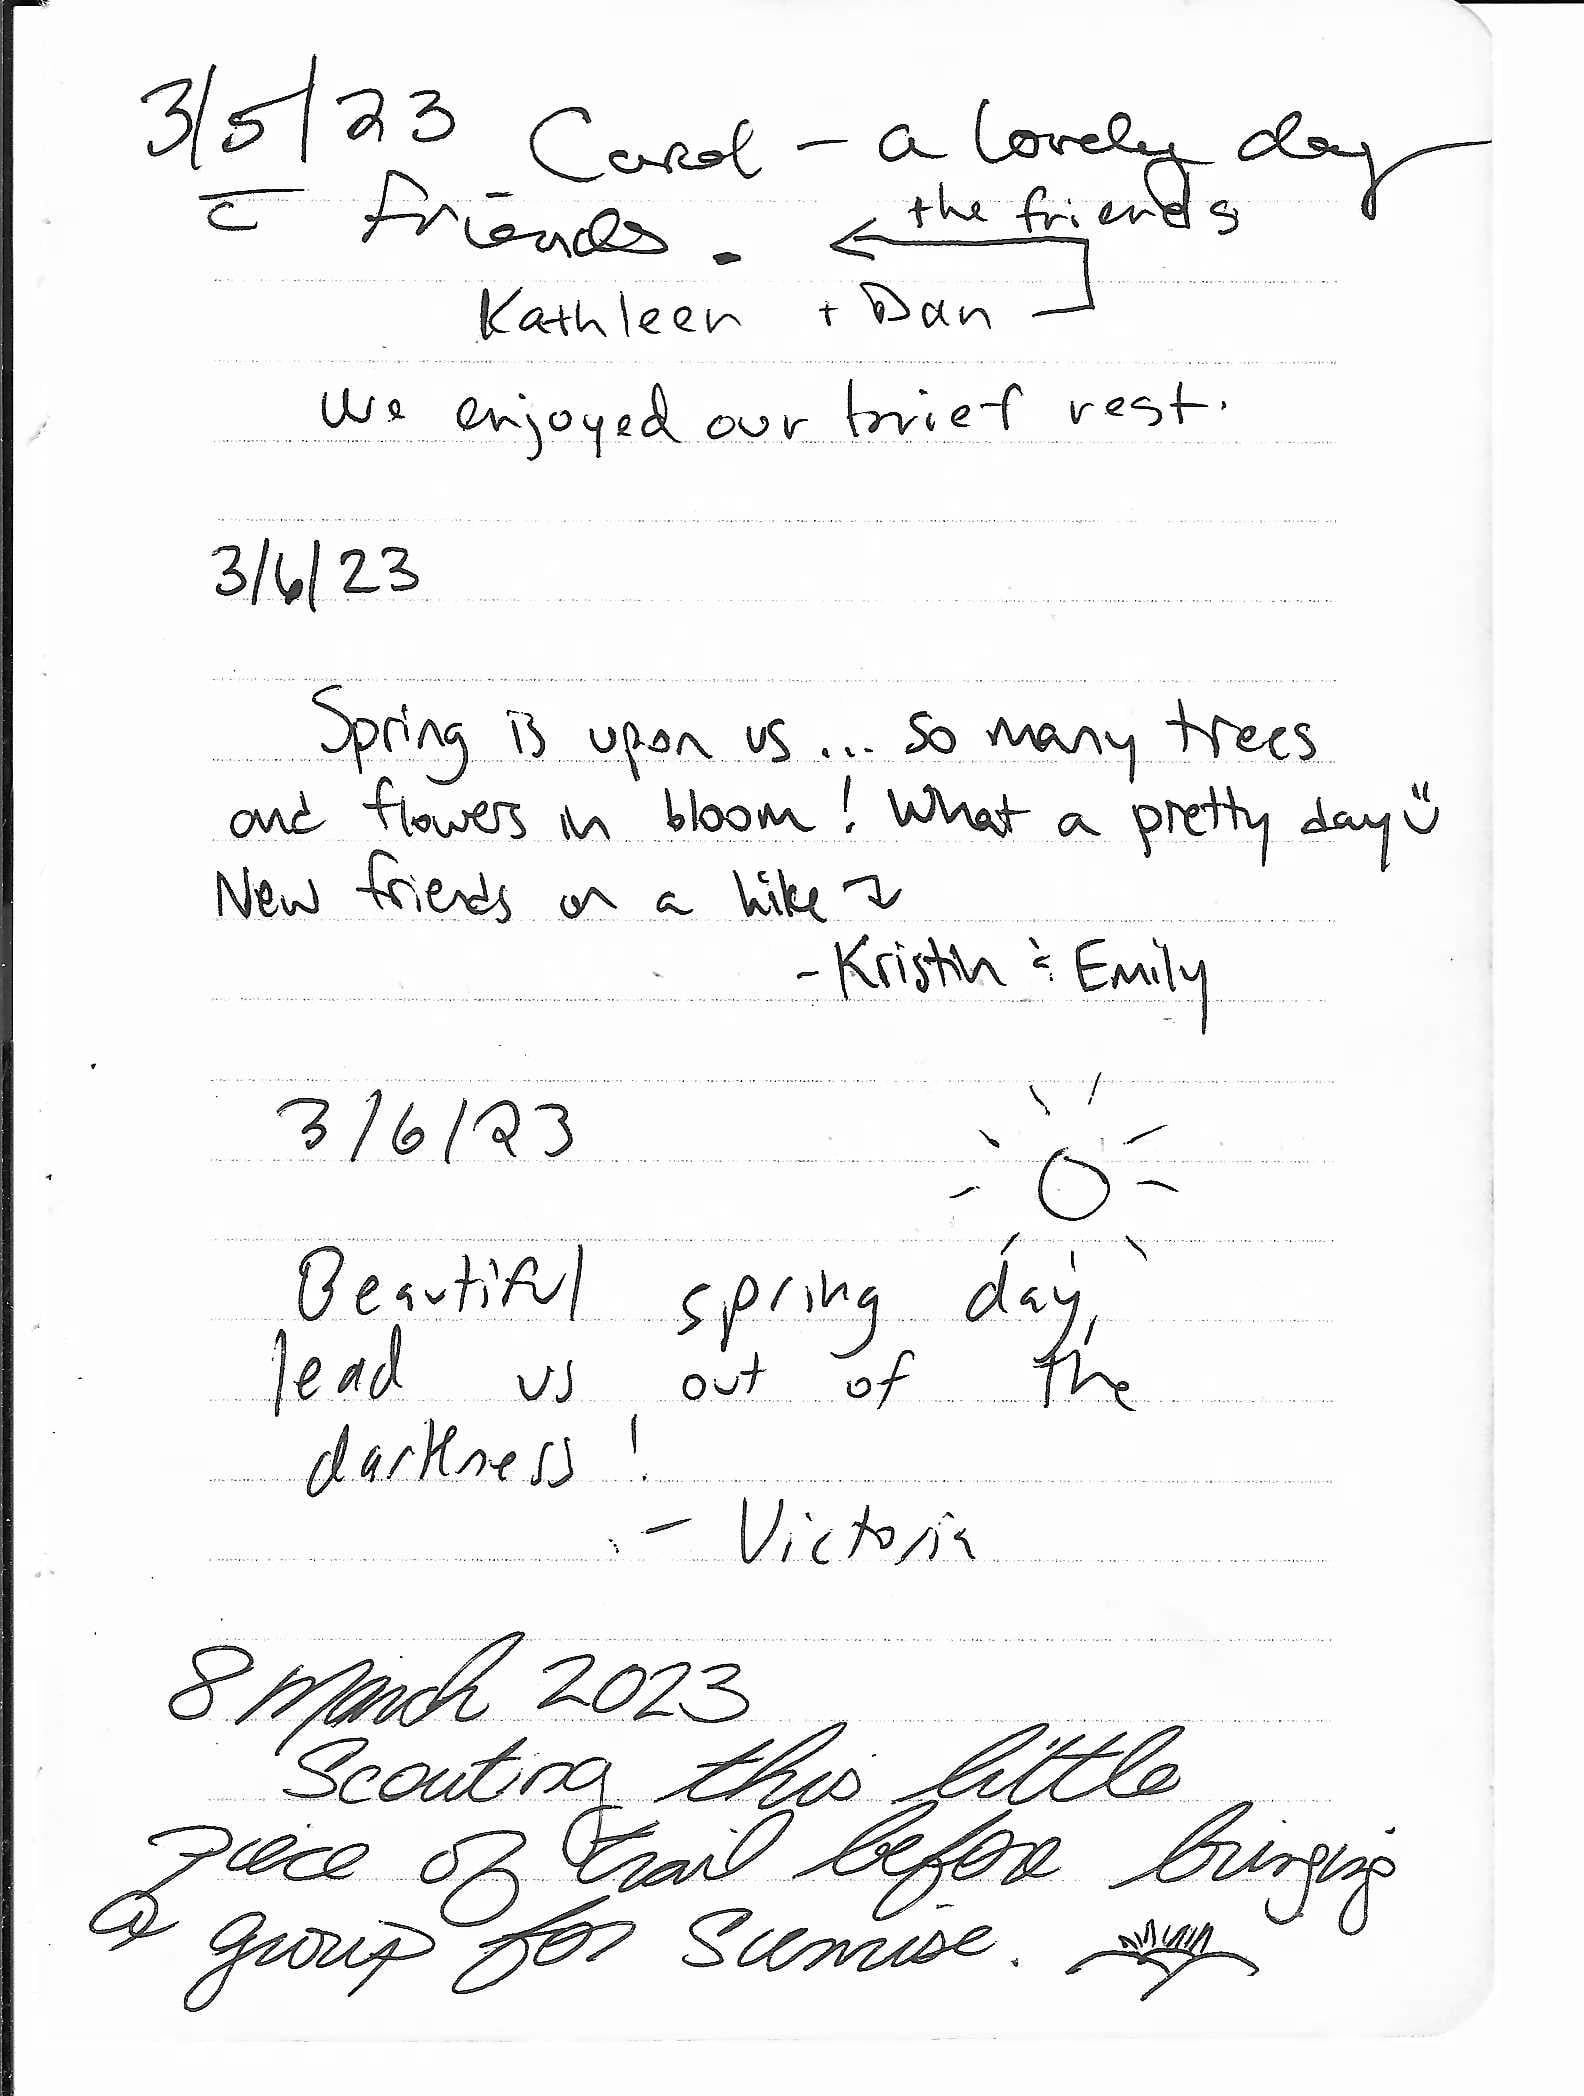 3/5/23 Carol - a lovely day
c̄ friends.
the friends
Kathleen + Dan
We enjoyed our brief rest.
3/6/23
Spring is upon us... so many trees
and flowers in bloom! What a pretty day
New friends on a hike
- Kristin & Emily
3/6/23
Beautiful spring day,
lead us out of the
darkness!
- Victoria
8 March 2023
Scouting this little
piece of trail before bringing
a group for Sunrise.